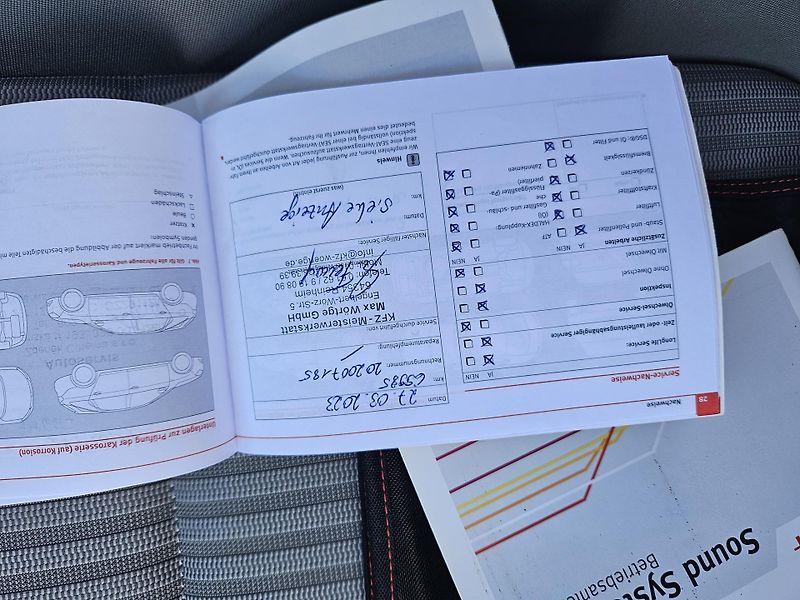 28
Nachweise
Service-Nachweise
JA NEIN
LongLife Service:
Zeit- oder laufleistungsabhängiger Service
Ölwechsel-Service
Inspektion
Ohne Ölwechsel
Mit Ölwechsel
Zusätzliche Arbeiten
JA NEIN
JA NEIN
Staub- und Pollenfilter
ATF
Luftfilter
HALDEX-Kupplung (Öl)
Kraftstofffilter
Gasfilter und -schläuche
Zündkerzen
Flüssiggasfilter
Bremsflüssigkeit
Zahnriemen
DSG®: Öl und Filter
Datum
27.03.2023
km:
65985
Rechnungsnummer:
202007185
Reparaturempfehlung:
Service durchgeführt von:
KFZ - Meisterwerkstatt
Max Wörtge GmbH
Engelbert-Wörz-Str. 5
64354 Reinheim
info@kfz-woertge.de
Nächster fälliger Service:
Datum:
Siehe Anzeige
km:
(was zuerst eintritt)
Hinweis
Wir empfehlen Ihnen, zur Ausführung jeder Art von Arbeiten an Ihrem Fahr-
zeug eine SEAT-Vertragswerkstatt aufzusuchen. Wenn die Services (Öl, In-
spektion) vollständig bei einer SEAT-Vertragswerkstatt durchgeführt werden,
bedeutet dies einen Mehrwert für Ihr Fahrzeug.
Unterlagen zur Prüfung der Karosserie (auf Korrosion)
Abb. Gilt für alle Fahrzeuge und Karosserietypen.
Ihr Fachbetrieb markiert auf der Abbildung die beschädigten Teile mit
den Symbolen:
Kratzer
Beule
Lackschaden
Steinschlag
Sound Syst
Betriebsanle